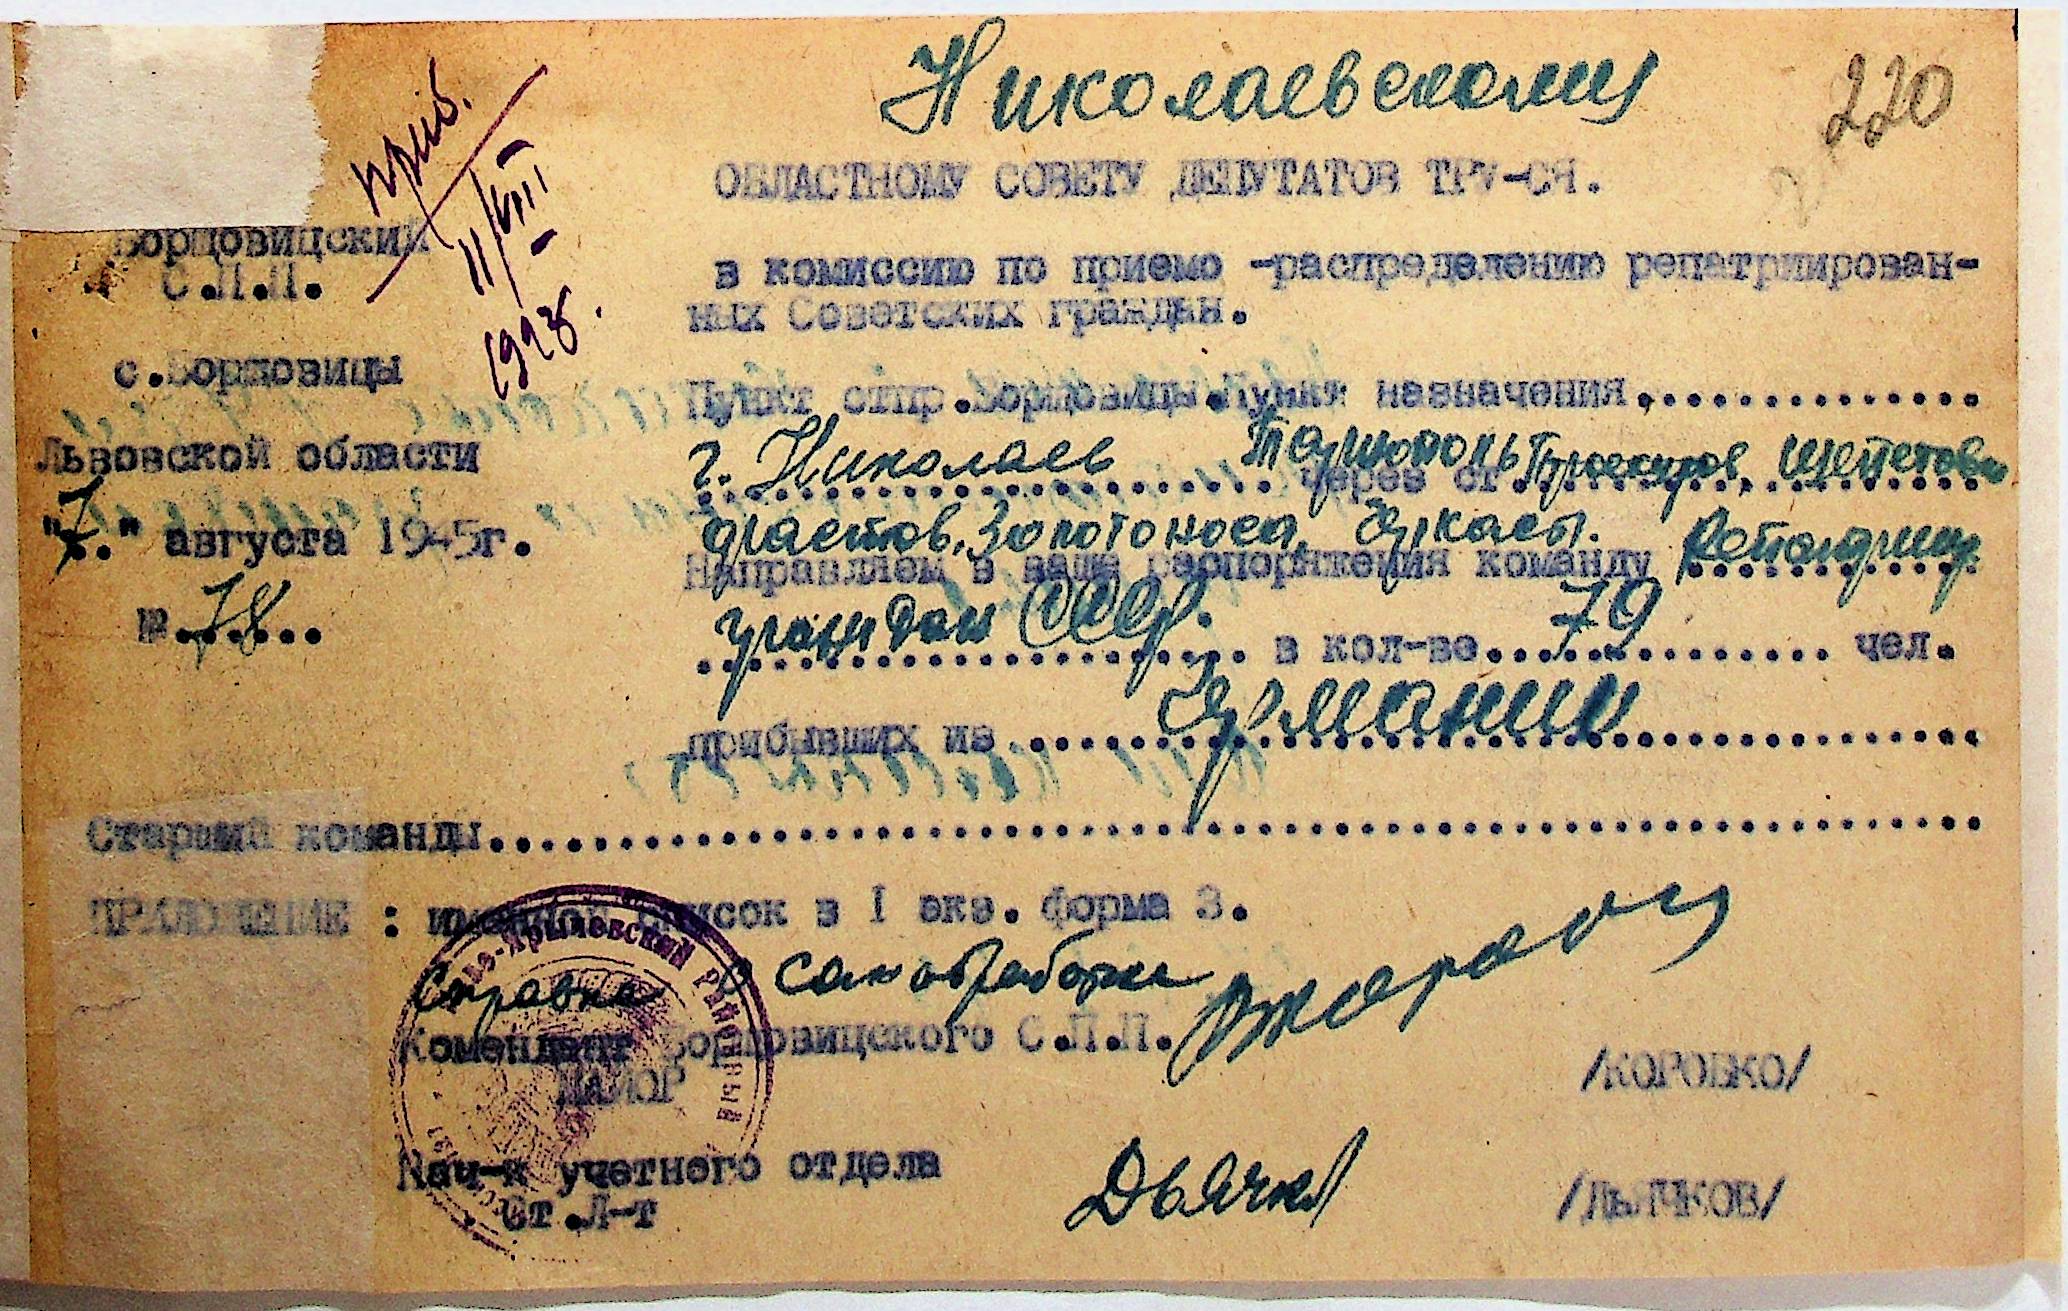 Николаевскому
220
ОБЛАСТНОМУ СОВЕТУ ДЕПУТАТОВ ТРУ-СЯ.
Приб.
11/VIII
1945.
Борщовицский
С.П.П.
с.Борщовицы
Львовской области
"7." августа 1945г.
№.78
в комиссию по приемо -распределению репатриирован-
ных Советских граждан.
Пункт отпр.Борщовицы.Пункт назначения
г. Николаев через ст. Тарнополь Проскуров, Шепетовка
Фастов, Золотоноса, Черкасы.
Направляем в ваше распоряжения команду
граждан СССР. в кол-ве 79 чел.
прибывших из Германии
Старший команды
ПРИЛОЖЕНИЕ : именной список в I экз. форма 3.
Справка о санобработке
Комендант Борщовицского С.П.П.
МАЙОР
/КОРОБКО/
Нач-к учетного отдела
Ст.Л-т
Дьячков
/ДЬЯЧКОВ/